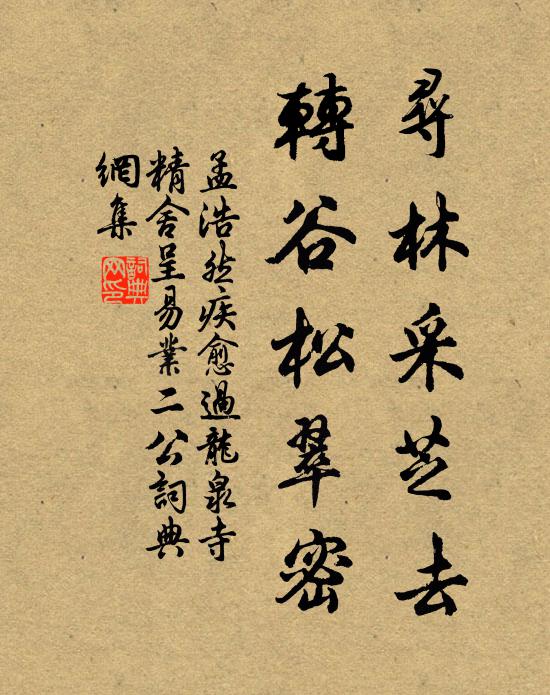 尋林采芝去
轉谷松翠密
孟浩然疾愈過龍泉寺
精舍呈易業二公詞典
網集
詞典
网印